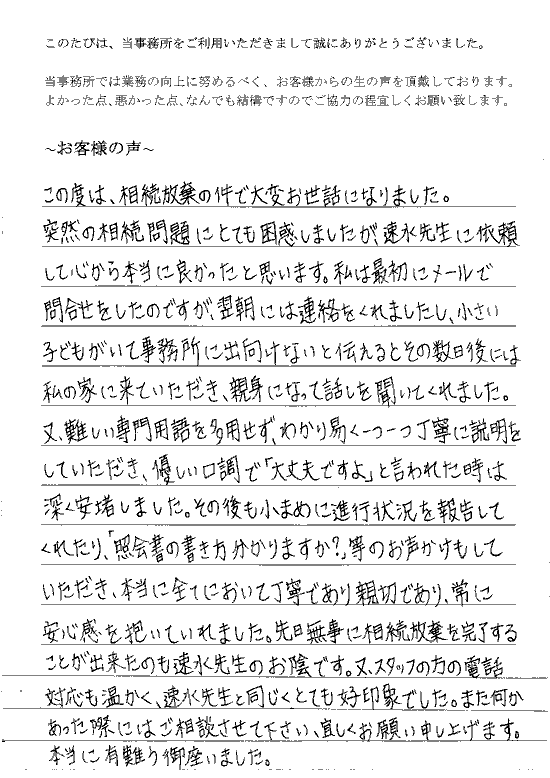 このたびは、当事務所をご利用いただきまして誠にありがとうございました。
当事務所では業務の向上に努めるべく、お客様からの生の声を頂戴しております。
よかった点、悪かった点、なんでも結構ですのでご協力の程宜しくお願い致します。
~お客様の声~
この度は、相続放棄の件で大変お世話になりました。
突然の相続問題にとても困惑しましたが、速水先生に依頼
して心から本当に良かったと思います。私は最初にメールで
問合せをしたのですが、翌朝には連絡をくれましたし、小さい
子どもがいて事務所に出向けないと伝えるとその数日後には
私の家に来ていただき、親身になって話しを聞いてくれました。
又、難しい専門用語を多用せず、わかり易く一つ一つ丁寧に説明を
していただき、優しい口調で「大丈夫ですよ」と言われた時は
深く安堵しました。その後も小まめに進行状況を報告して
くれたり、「照会書の書き方分かりますか?」等のお声かけもして
いただき、本当に全てにおいて丁寧であり親切であり、常に
安心感を抱いていれました。先日無事に相続放棄を完了する
ことが出来たのも速水先生のお陰です。又、スタッフの方の電話
対応も温かく、速水先生と同じくとても好印象でした。また何か
あった際にはご相談させて下さい、宜しくお願い申し上げます。
本当に有難う御座いました。